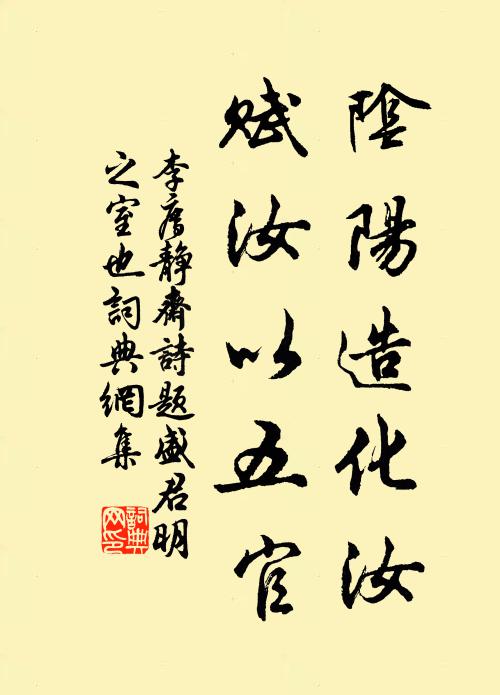 陰陽造化汝
賦汝以五官
李廌靜齋詩題盛君明
之室也詞典網集
詞典
网印